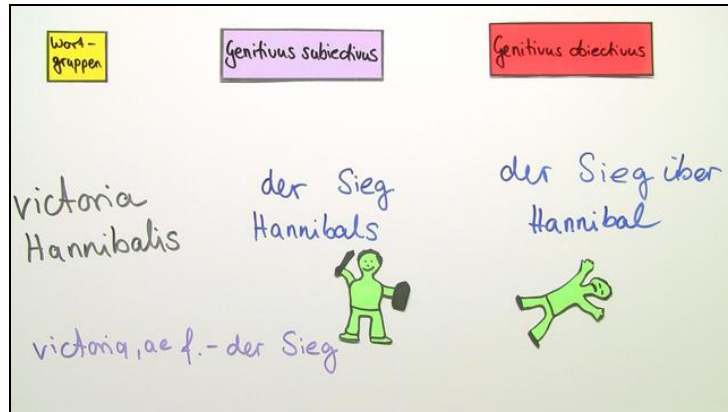 Wort-
gruppen
Genitivus subiectivus
Genitivus obiectivus
victoria
Hannibalis
der Sieg
Hannibals
der Sieg über
Hannibal
victoria, ae f. - der Sieg